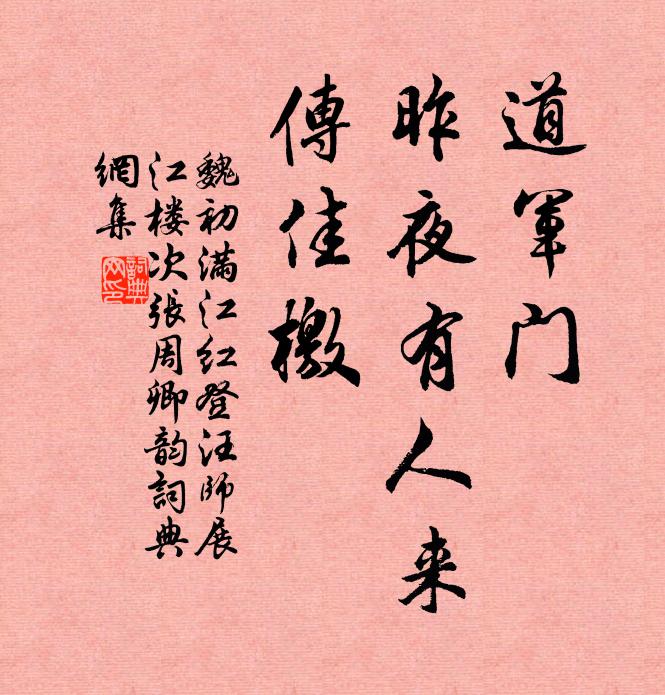 道军门
昨夜有人来
傳佳檄
魏初满江红登汪师展
江楼次張周卿韵詞典
網集
詞典
网印